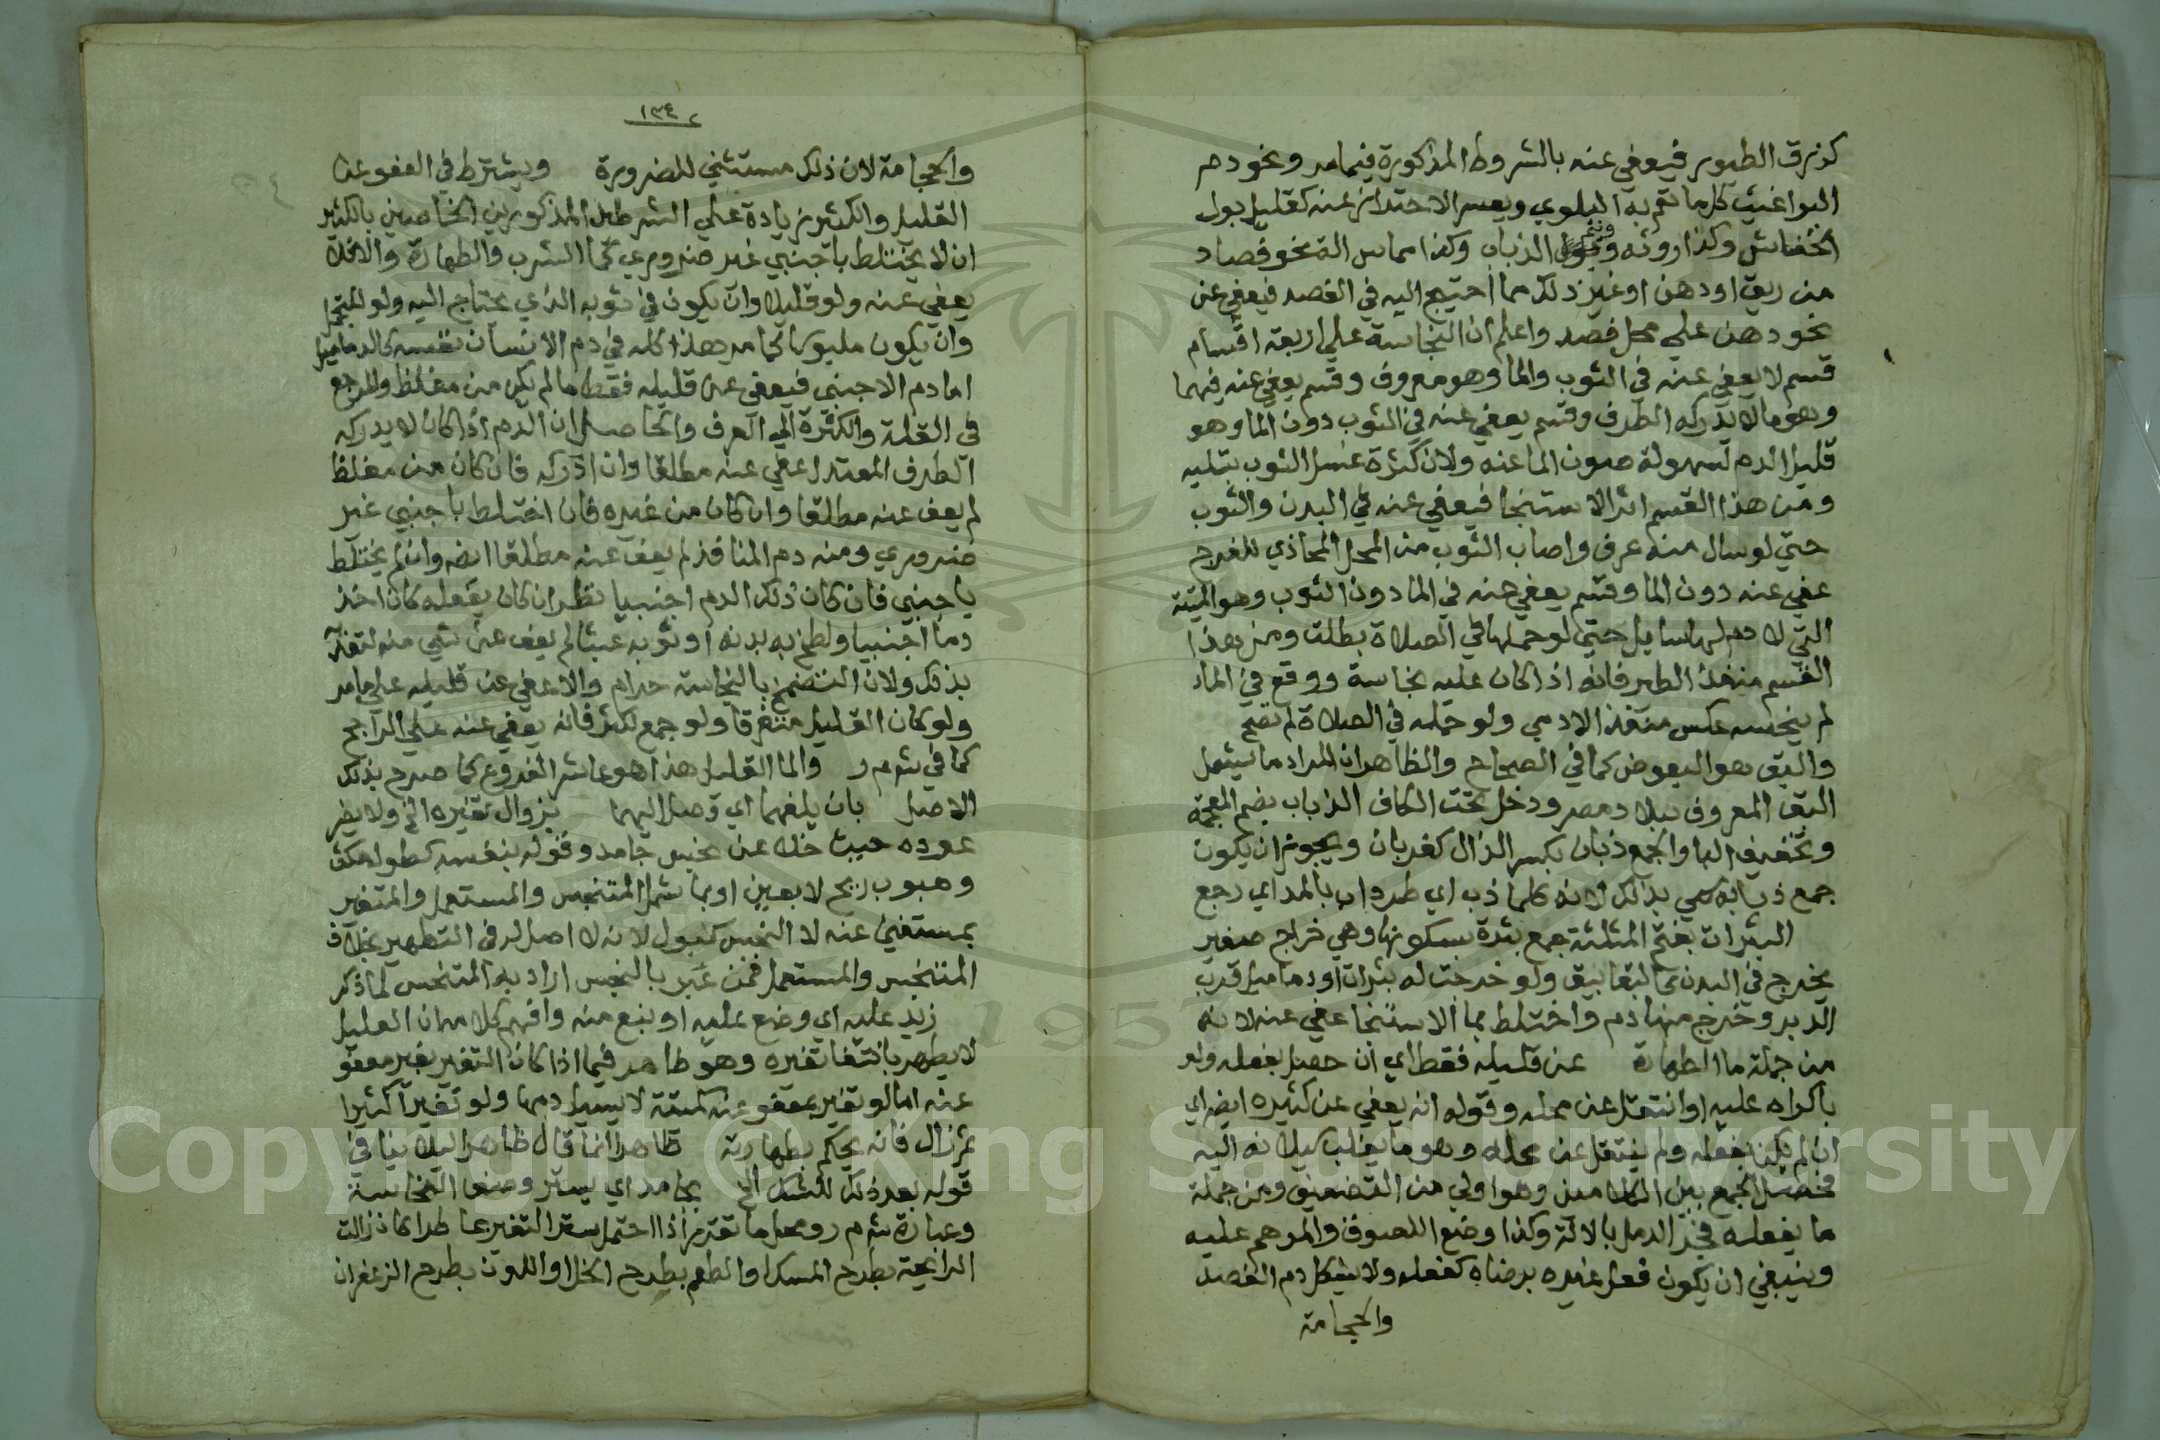 كزرق الطيور فيعفي عنه بالشروط المذكورة فيما مر ونحو دم
البراغيث كل ما تعم به البلوي ويعسر الاحتراز عنه كقليل بول
الخفاش وكذا روثه وونيم الذباب وكذا مماس الة نحو فصاد
من ريق او دهن او غير ذلك مما احتيج اليه في الفصد فيعفي عن
نحو دهن علي محل فصد واعلم ان النجاسة علي اربعة اقسام
قسم لا يعفي عنه في الثوب والما وهو معروف وقسم يعفي عنه فيهما
وهو ما لا يدركه الطرف وقسم يعفي عنه في الثوب دون الما وهو
قليل الدم لسهولة صون الما عنه ولان كثرة غسل الثوب تبليه
ومن هذا القسم اثر الاستنجا فيعفي عنه في البدن والثوب
حتي لو سال منه عرق واصاب الثوب من المحل المحاذي للفرج
عفي عنه دون الما وقسم يعفي عنه في الما دون الثوب وهو الميتة
التي لا دم لها سايل حتي لو حملها في الصلاة بطلت ومن هذا
القسم منفذ الطير فانه اذا كان عليه نجاسة ووقع في الماء
لم ينجسه عكس منفذ الادمي ولو حمله في الصلاة لم تصح
والبق هو البعوض كما في الصحاح والظاهر ان المراد ما يشمل
البق المعروف ببلاد مصر ودخل تحت الكاف الذباب بضم المعجمة
وتخفيف البا والجمع ذبان بكسر الذال كغربان ويجوز ان يكون
جمع ذبابة سمي بذلك لانه كلما ذب اي طرد اب بالمد اي رجع
البثرات بفتح المثلثة جمع بثرة بسكونها وهي خراج صغير
يخرج في البدن كالبقابيق ولو خرجت له بثرات او دماميل قرب
الدبر وخرج منها دم واختلط بما الاستنجا عفي عنه لانه
من جملة ما الطهارة عن قليله فقط اي ان حصل بفعله ولو
باكراه عليه او انتقل عن محله وقوله انه يعفي عن كثيره ايضا اي
ان لم يكن بفعله ولم ينتقل عن محله وهو ما يغلب سيلانه اليه
فحصل الجمع بين الكلامين وهو اولي من التضعيف ومن جملة
ما يفعله فجر الدمل بالالة وكذا وضع اللصوق والمرهم عليه
وينبغي ان يكون فعل غيره برضاه كفعله ولا يشكل دم الفصد
والحجامة
١٣٤
والحجامة لان ذلك مستثني للضرورة ويشترط في العفو عن
القليل والكثير زيادة علي الشرطين المذكورين الخاصين بالكثير
ان لا يختلط باجنبي غير ضروري كما الشرب والطهارة والا فلا
يعفي عنه ولو قليلا وان يكون في ثوبه الذي يحتاج اليه ولو للتجمل
وان يكون ملبوسا كما مر هذا كله في دم الانسان نفسه كالدماميل
اما دم الاجنبي فيعفي عن قليله فقط ما لم يكن من مغلظ والمرجع
في القلة والكثرة الي العرف والحاصل ان الدم اذا كان لا يدركه
الطرف المعتدل عفي عنه مطلقا وان ادركه فان كان من مغلظ
لم يعف عنه مطلقا وان كان من غيره فان اختلط باجنبي غير
ضروري ومنه دم المنافذ لم يعف عنه مطلقا ايضا وان لم يختلط
باجنبي فان كان ذلك الدم اجنبيا نظر ان كان بفعله كان اخذ
دما اجنبيا ولطخ به بدنه او ثوبه عبثا لم يعف عن شي منه لتعديه
بذلك ولان التضمخ بالنجاسة حرام والا عفي عن قليله علي ما مر
ولو كان القليل متفرقا ولو جمع لكثر فانه يعفي عنه علي الراجح
كما في ش م ر والما القليل هذا هو عاشر الفروع كما صرح بذلك
الاصل بان بلغهما اي وصل اليهما بزوال تغيره الخ ولا يضر
عوده حيث خلا عن نجس جامد وقوله بنفسه كطول مكث
وهبوب ريح لا بعين او بما شمل المتنجس والمستعمل والمتغير
بمستغني عنه لا النجس كبول لانه لا اصل له في التطهير بخلاف
المتنجس والمستعمل فمن عبر بالنجس اراد به المتنجس لما ذكر
زيد عليه اي وضع عليه او نبع منه وافهم كلامه ان القليل
لا يطهر بانتفا تغيره وهو ظاهر فيما اذا كان التغير بغير معفو
عنه اما لو تغير بمعفو عنه كميتة لا يسيل دمها ولو تغيرا كثيرا
ثم زال فانه يحكم بطهارته ظاهرا انما قال ظاهرا ليلا ينافي
قوله بعد ذلك للشك الخ بجامد اي يستر وصف النجاسة
وعبارة ش م ر ومحل ما تقرر اذا احتمل ستر التغير بما طرا كان زالت
الرايحة بطرح المسك او الطعم بطرح الخل او اللون بطرح الزعفران
Copyright © King Saud University
1957